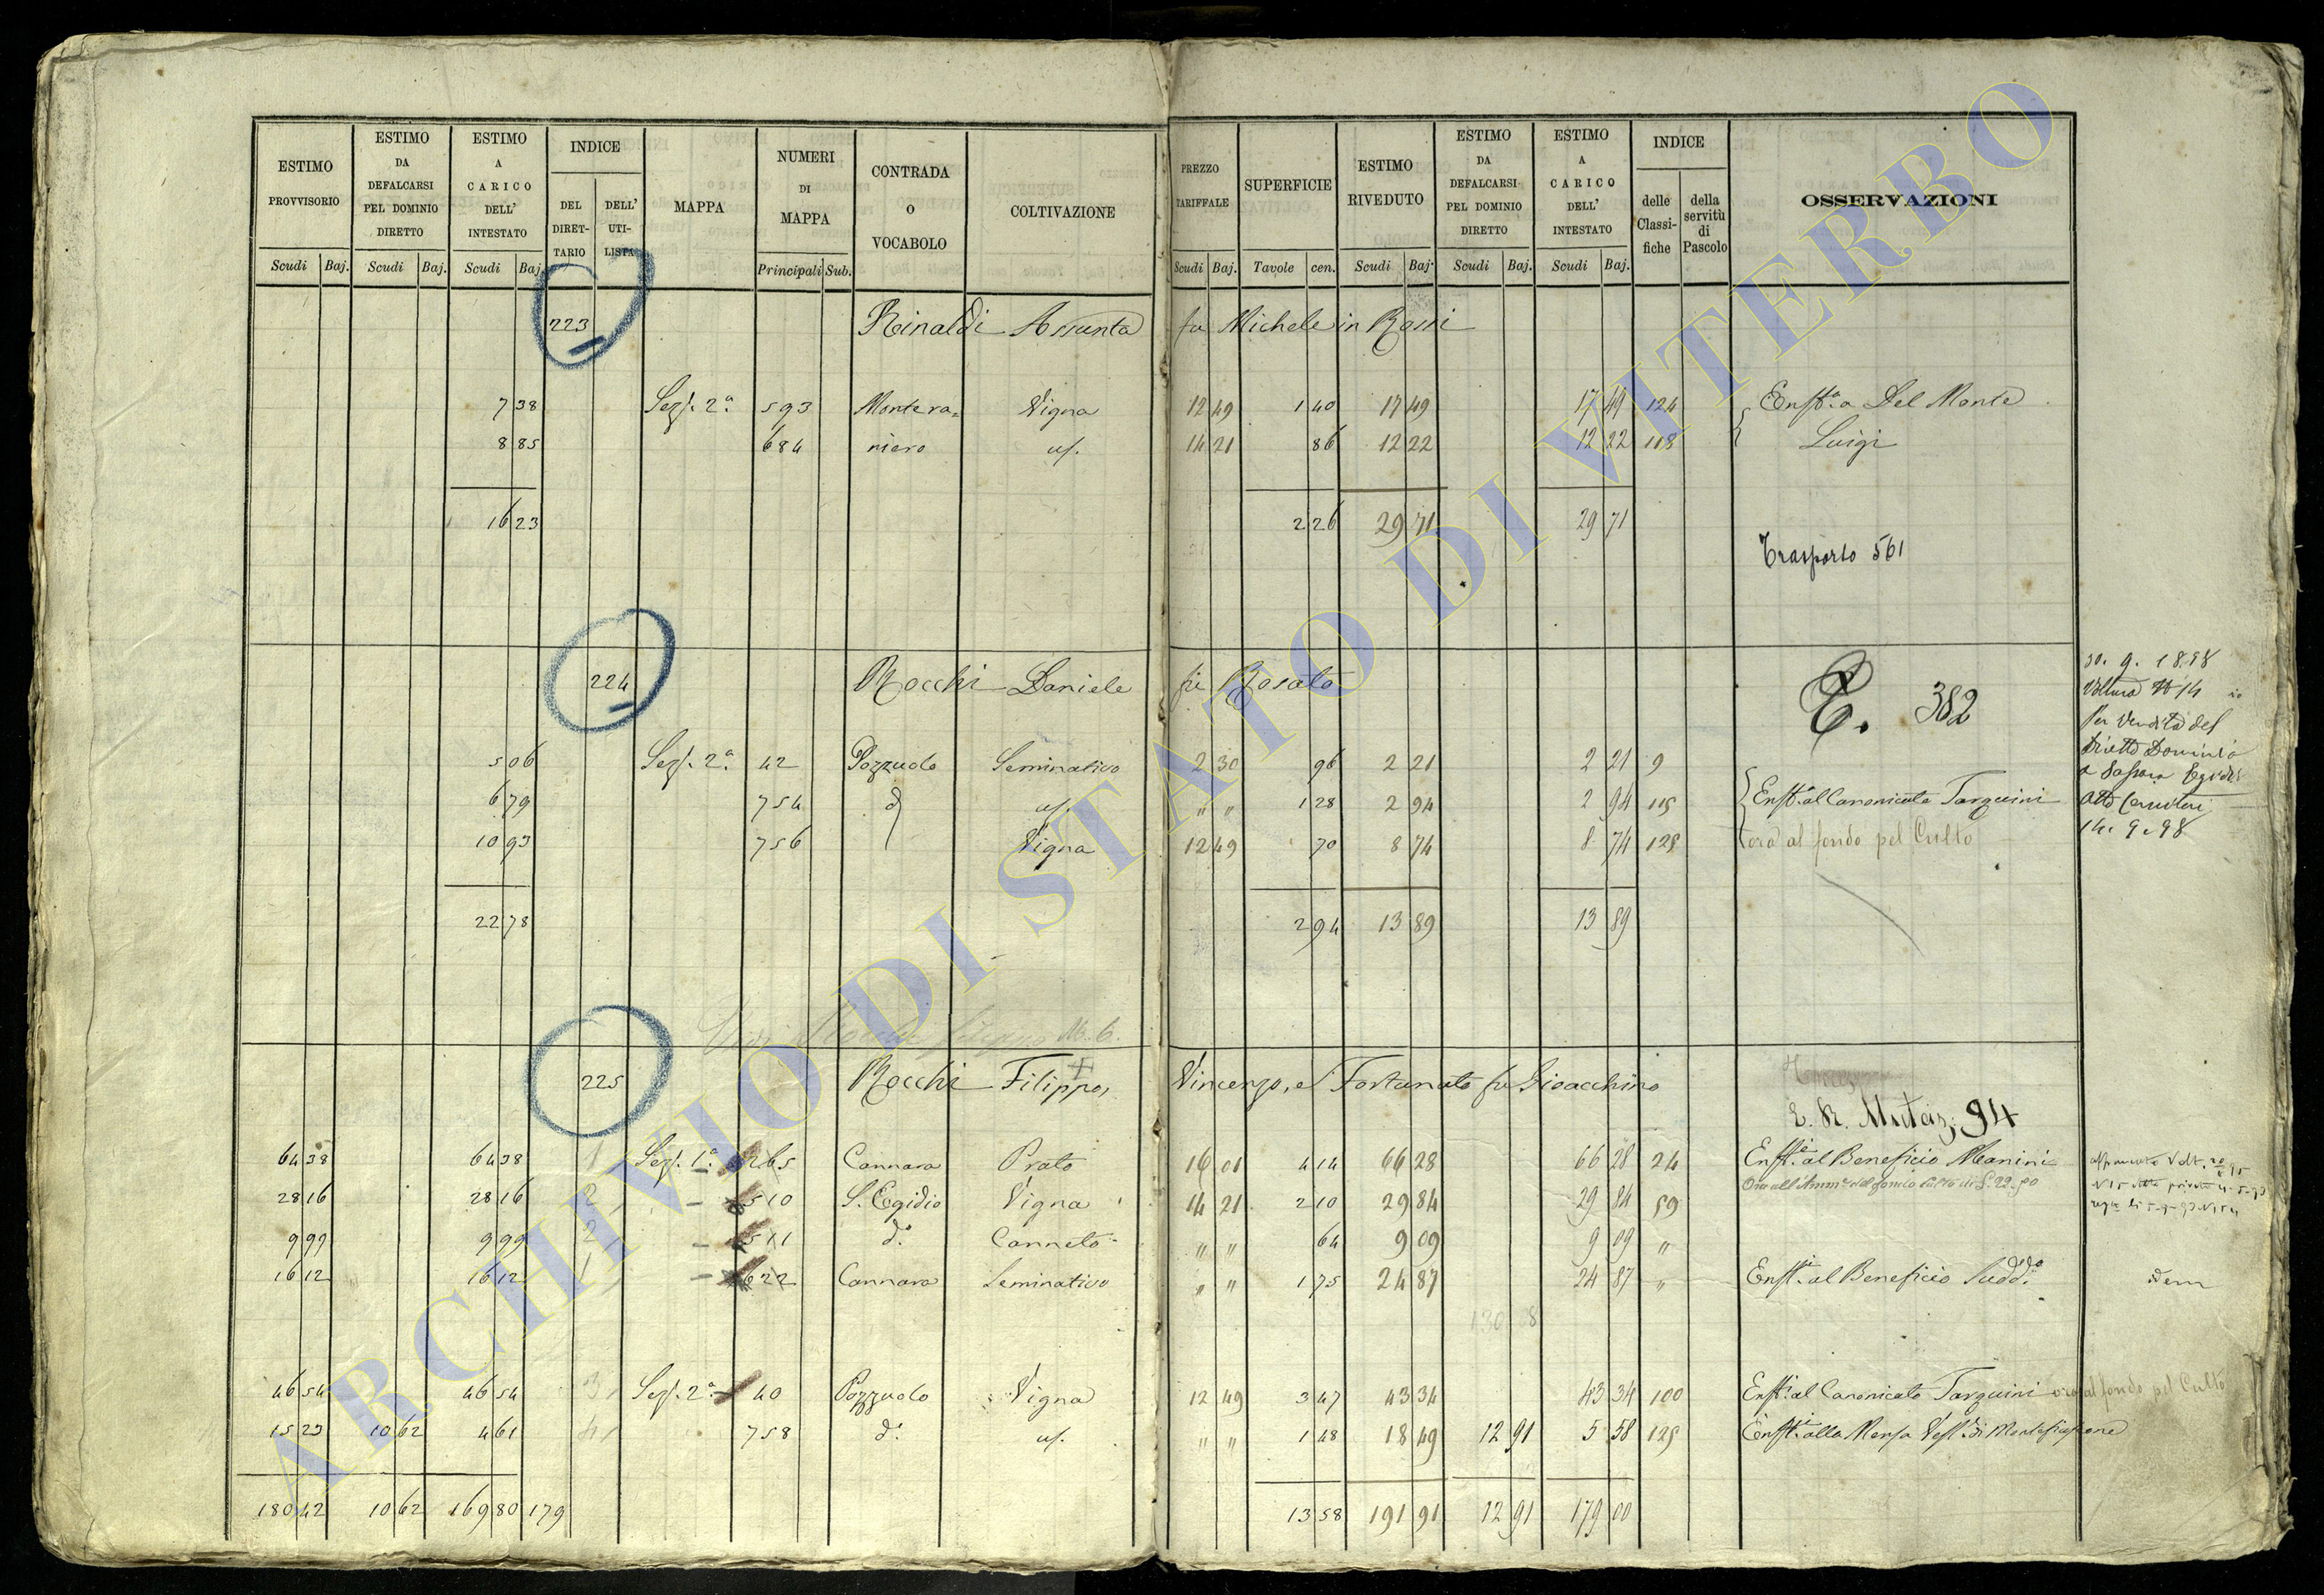 ESTIMO PROVVISORIO | ESTIMO DA DEFALCARSI PEL DOMINIO DIRETTO | ESTIMO A CARICO DELL' INTESTATO | INDICE | MAPPA | NUMERI DI MAPPA | CONTRADA O VOCABOLO | COLTIVAZIONE | PREZZO TARIFFALE | SUPERFICIE | ESTIMO RIVEDUTO | ESTIMO DA DEFALCARSI PEL DOMINIO DIRETTO | ESTIMO A CARICO DELL' INTESTATO | INDICE | OSSERVAZIONI
DEL DIRET-TARIO | DELL' UTI-LISTA | delle Classi-fiche | della servitù di Pascolo
Scudi | Baj. | Scudi | Baj. | Scudi | Baj. | Principali | Sub. | Scudi | Baj. | Tavole | cen. | Scudi | Baj. | Scudi | Baj. | Scudi | Baj.
223 Rinaldi Assunta fu Michele in Rossi
7 38 Sez. 2a. 593 Montera= Vigna 12 49 1 40 17 49 17 49 124 Enft.a a Del Monte
8 85 684 niero uf. 14 21 86 12 22 12 22 118 Luigi
16 23 2 26 29 71 29 71
Trasporto 561
224 Rocchi Daniele fu Rosato
E. 382
30. 9. 1898
Voltura N 14
Per vendita del
Diretto Dominio
a
Atto
14. 9. 98
5 06 Sez. 2a. 42 Pozzuolo Seminativo 2 30 96 2 21 2 21 9
6 79 754 d uf. " " 1 28 2 94 2 94 115 Enft.a al Canonicato Tarquini
10 93 756 Vigna 12 49 70 8 74 8 74 125 ora al fondo pel Culto
22 78 2 94 13 89 13 89
225 Rocchi Filippo, Vincenzo, e Fortunato fu Gioacchino
E. R. Mutaz. 94
64 38 64 38 1 Sez. 1a. 265 Cannara Prato 16 01 4 14 66 28 66 28 24 Enft.i al Beneficio Manini
28 16 28 16 2 510 S. Egidio Vigna 14 21 2 10 29 84 29 84 59
9 99 9 99 2 511 d.o Canneto " " 64 9 09 9 09 "
16 12 16 12 1 622 Cannara Seminativo " " 1 75 24 87 24 87 " Enft.i al Beneficio Sudd.o idem
130 08
46 54 46 54 3 Sez. 2a. 40 Pozzuolo Vigna 12 49 3 47 43 34 43 34 100 Enft.i al Canonicato Tarquini ora al fondo pel Culto
15 23 10 62 4 61 4 758 d.o uf. " " 1 48 18 49 12 91 5 58 125 Enft.i alla Mensa Vesc. di Montefiascone
180 42 10 62 169 80 179 13 58 191 91 12 91 179 00
ARCHIVIO DI STATO DI VITERBO